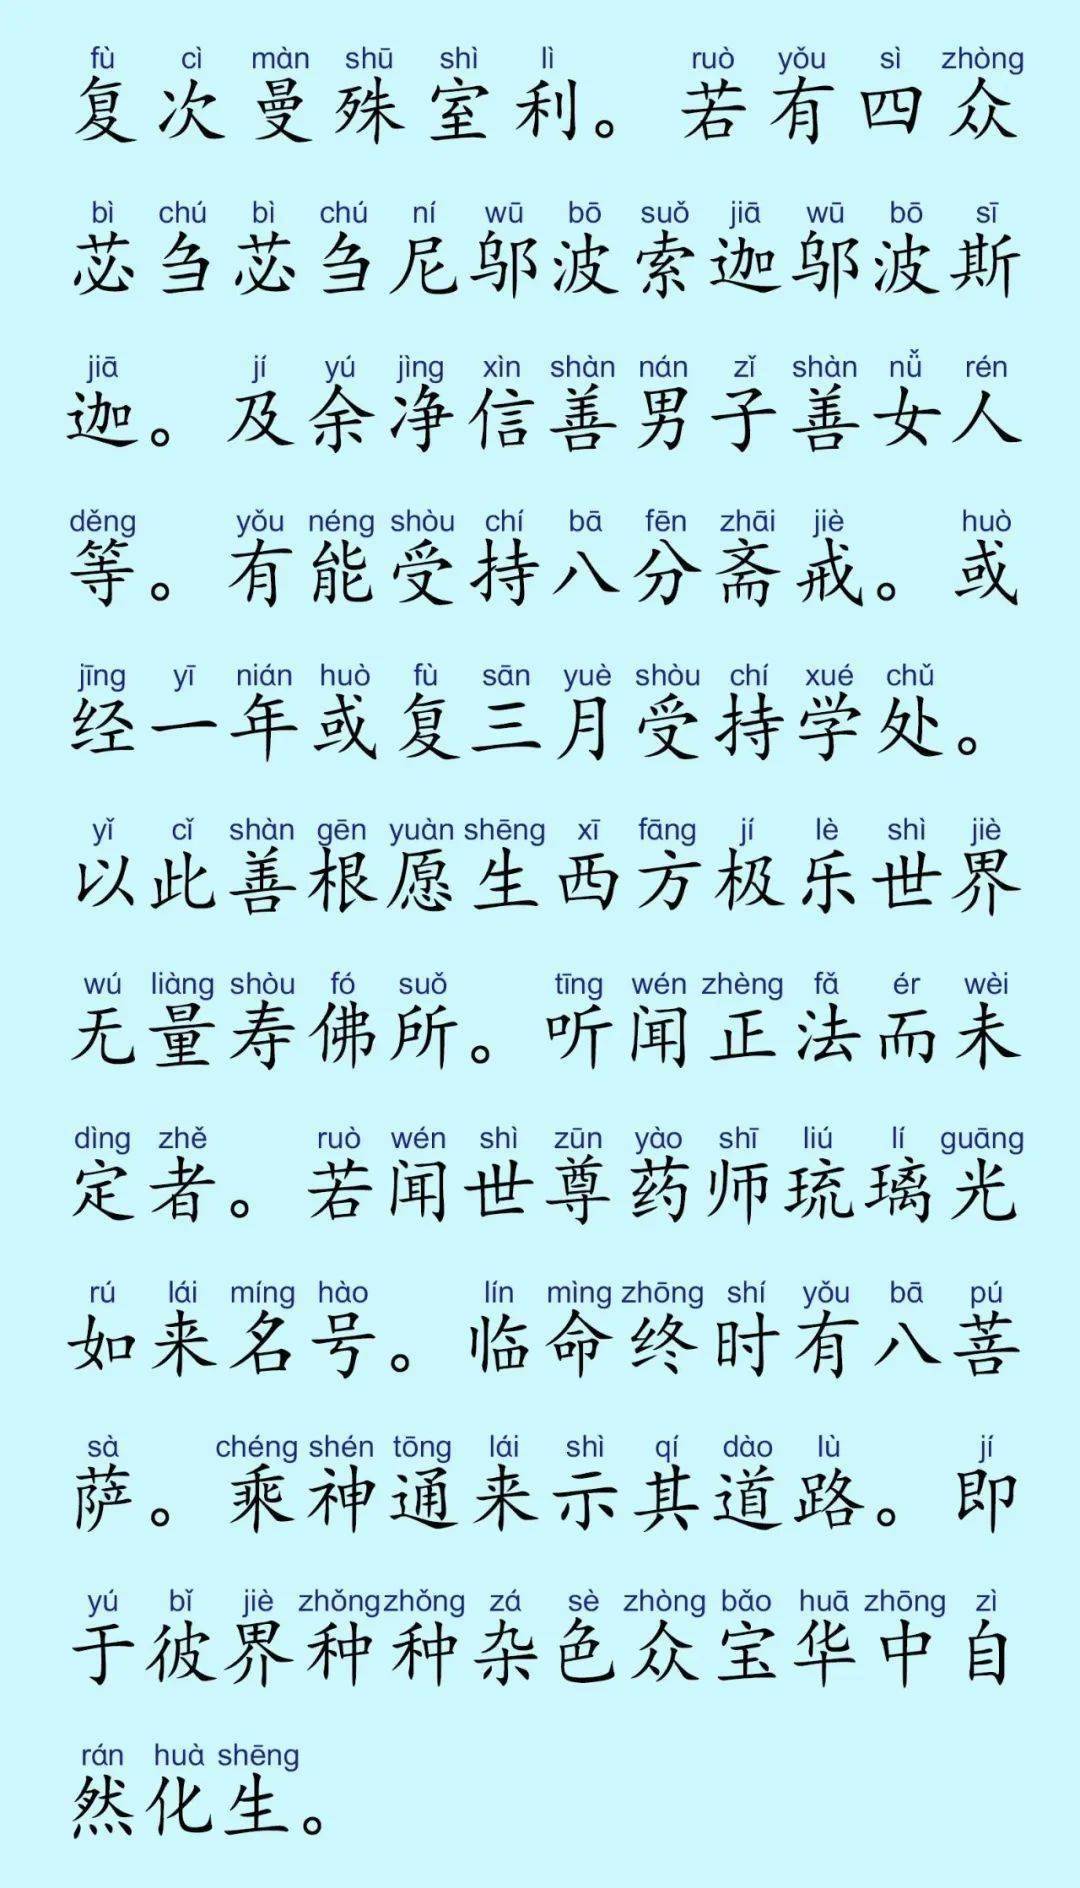 fù cì màn shū shì lì ruò yǒu sì zhòng
复次曼殊室利。若有四众
bì chú bì chú ní wū bō suǒ jiā wū bō sī
苾刍苾刍尼邬波索迦邬波斯
jiā jí yú jìng xìn shàn nán zǐ shàn nǚ rén
迦。及余净信善男子善女人
děng yǒu néng shòu chí bā fēn zhāi jiè huò
等。有能受持八分斋戒。或
jīng yī nián huò fù sān yuè shòu chí xué chǔ
经一年或复三月受持学处。
yǐ cǐ shàn gēn yuàn shēng xī fāng jí lè shì jiè
以此善根愿生西方极乐世界
wú liàng shòu fó suǒ tīng wén zhèng fǎ ér wèi
无量寿佛所。听闻正法而未
dìng zhě ruò wén shì zūn yào shī liú lí guāng
定者。若闻世尊药师琉璃光
rú lái míng hào lín mìng zhōng shí yǒu bā pú
如来名号。临命终时有八菩
sà chéng shén tōng lái shì qí dào lù jí
萨。乘神通来示其道路。即
yú bǐ jiè zhǒng zhǒng zá sè zhòng bǎo huā zhōng zì
于彼界种种杂色众宝华中自
rán huà shēng
然化生。